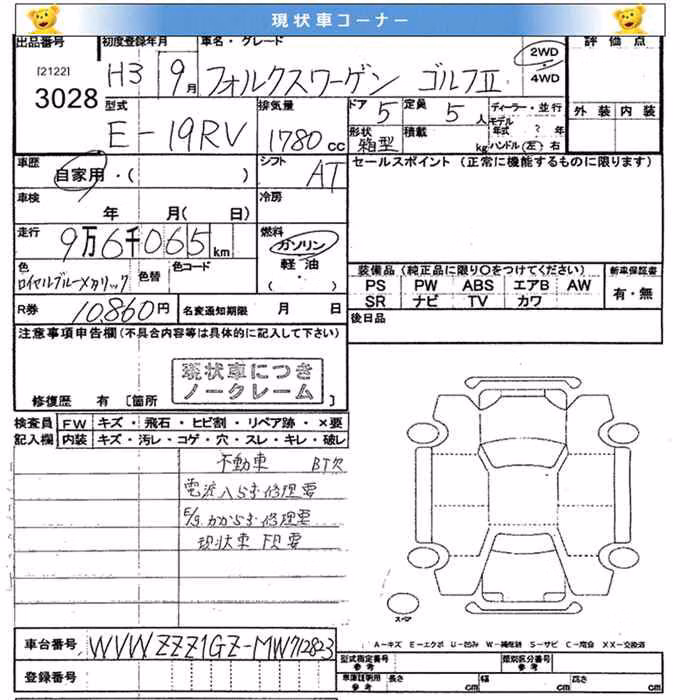 現状車コーナー
出品番号 初度登録年月 車名・グレード 評価点
[2122]
3028
H3 9月 フォルクスワーゲン ゴルフII 2WD
4WD
型式 排気量 ドア 定員 ディーラー・並行 外装 内装
E-19RV 1780cc 5 5人 モデル年式 ? 年
形状 箱型 積載 kg ハンドル 左 右
車歴 シフト セールスポイント (正常に機能するものに限ります)
自家用・( ) AT
車検 冷房
年 月( 日)
走行 燃料
9万6千065km ガソリン
軽油
( )
色 色替 色コード
ロイヤルブルーメタリック
装備品 (純正品に限り○をつけてください) 新車保証書
PS PW ABS エアB AW 有・無
SR ナビ TV カワ
R券 10,860円 名変通知期限 月 日 後日品
注意事項申告欄 (不具合内容等は具体的に記入して下さい)
現状車につき
ノークレーム
修復歴 有 [箇所 ]
検査員 FW キズ・飛石・ヒビ割・リペア跡・×要
記入欄 内装 キズ・汚レ・コゲ・穴・スレ・キレ・破レ
不動車 BT欠
電流入らず修理要
E/g かからず修理要
現状車 下見要
スペア
A-キズ E-エクボ U-凹み W-補修跡 S-サビ C-腐食 XX-交換済
車台番号 WVWZZZ1GZ-MW712823
型式指定番号 参考 類別区分番号 参考
登録番号 車庫証明用 参考 長さ cm 幅 cm 高さ cm